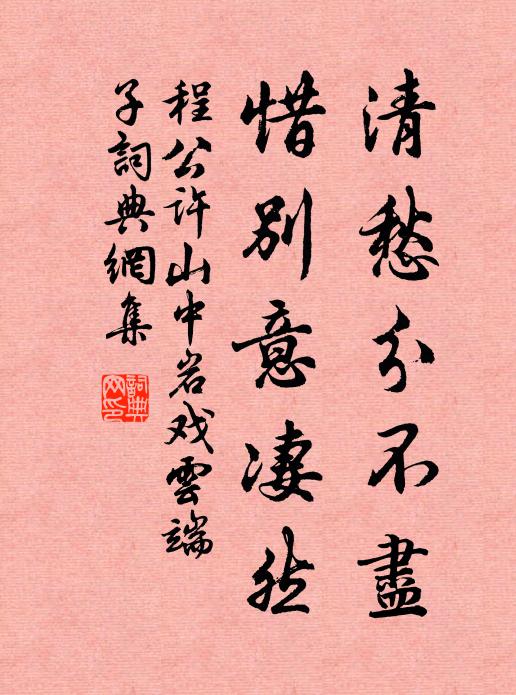 清愁分不盡
惜別意凄然
程公许山中岩戏雲端
子詞典網集
詞典網印